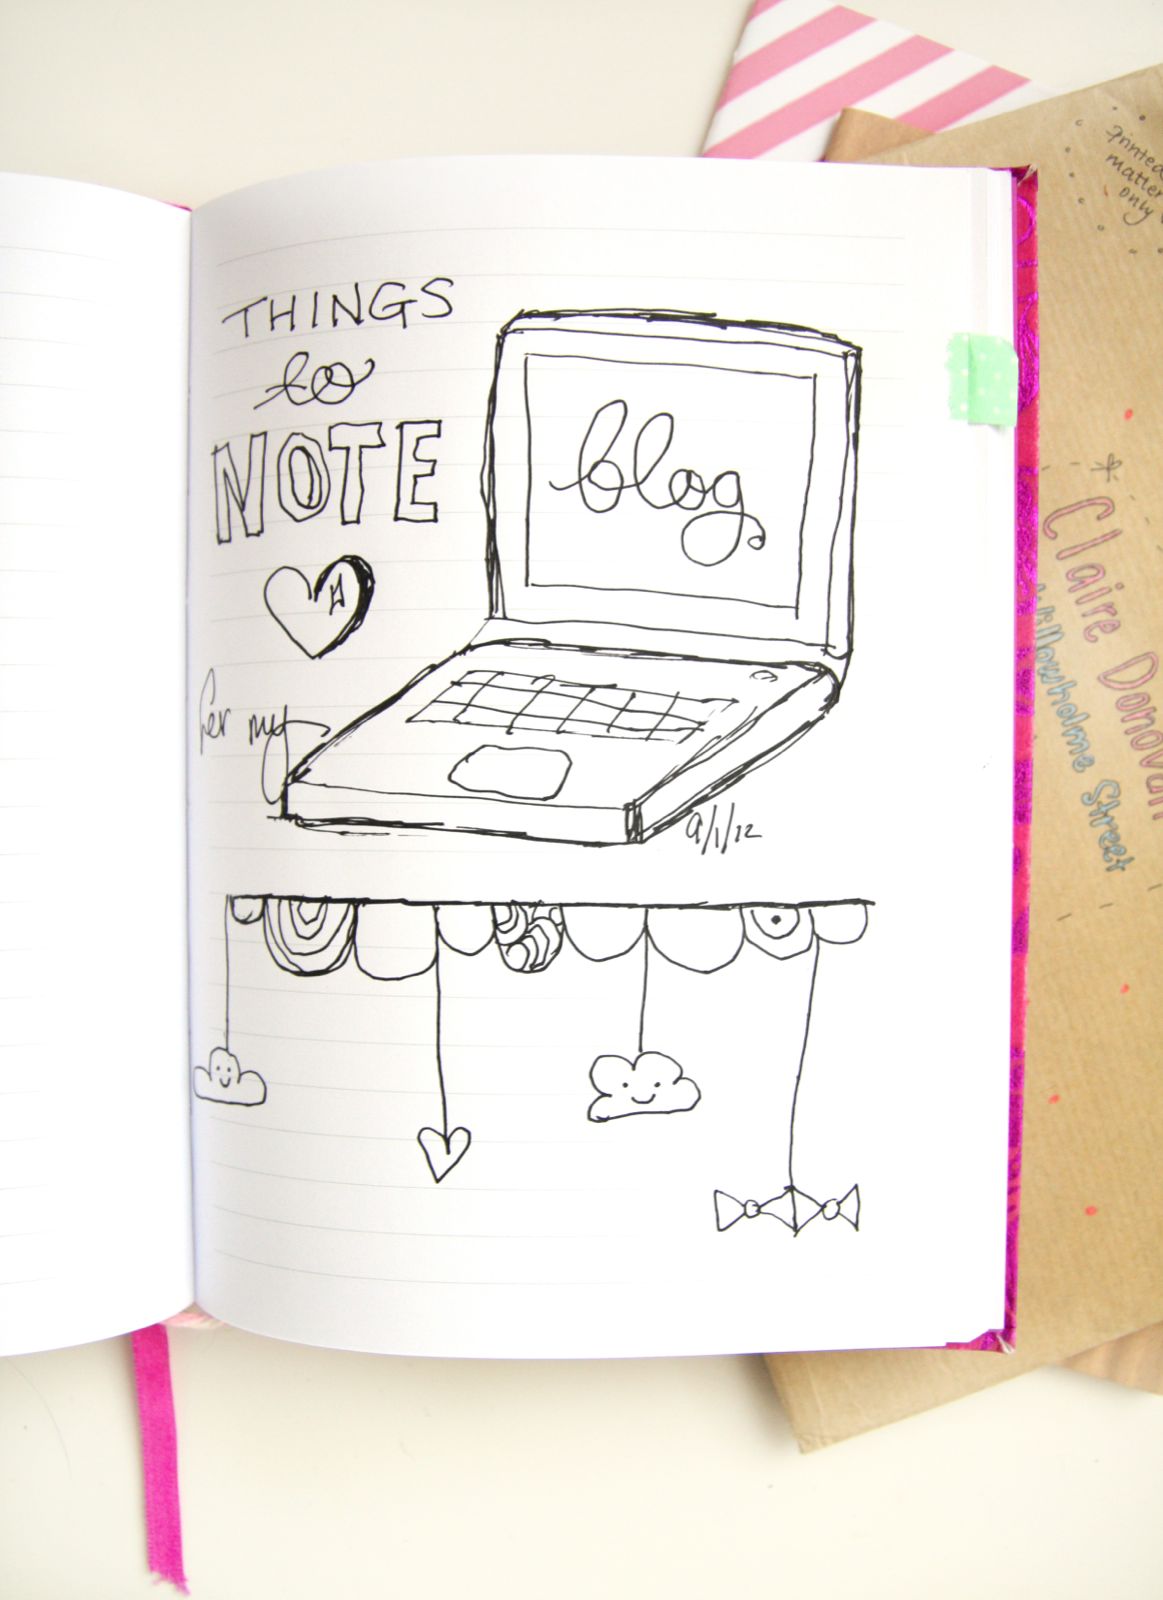 THINGS
to
NOTE
for my
blog
9/1/12
Printed
matter
only
Claire Donovan
Willowholme Street